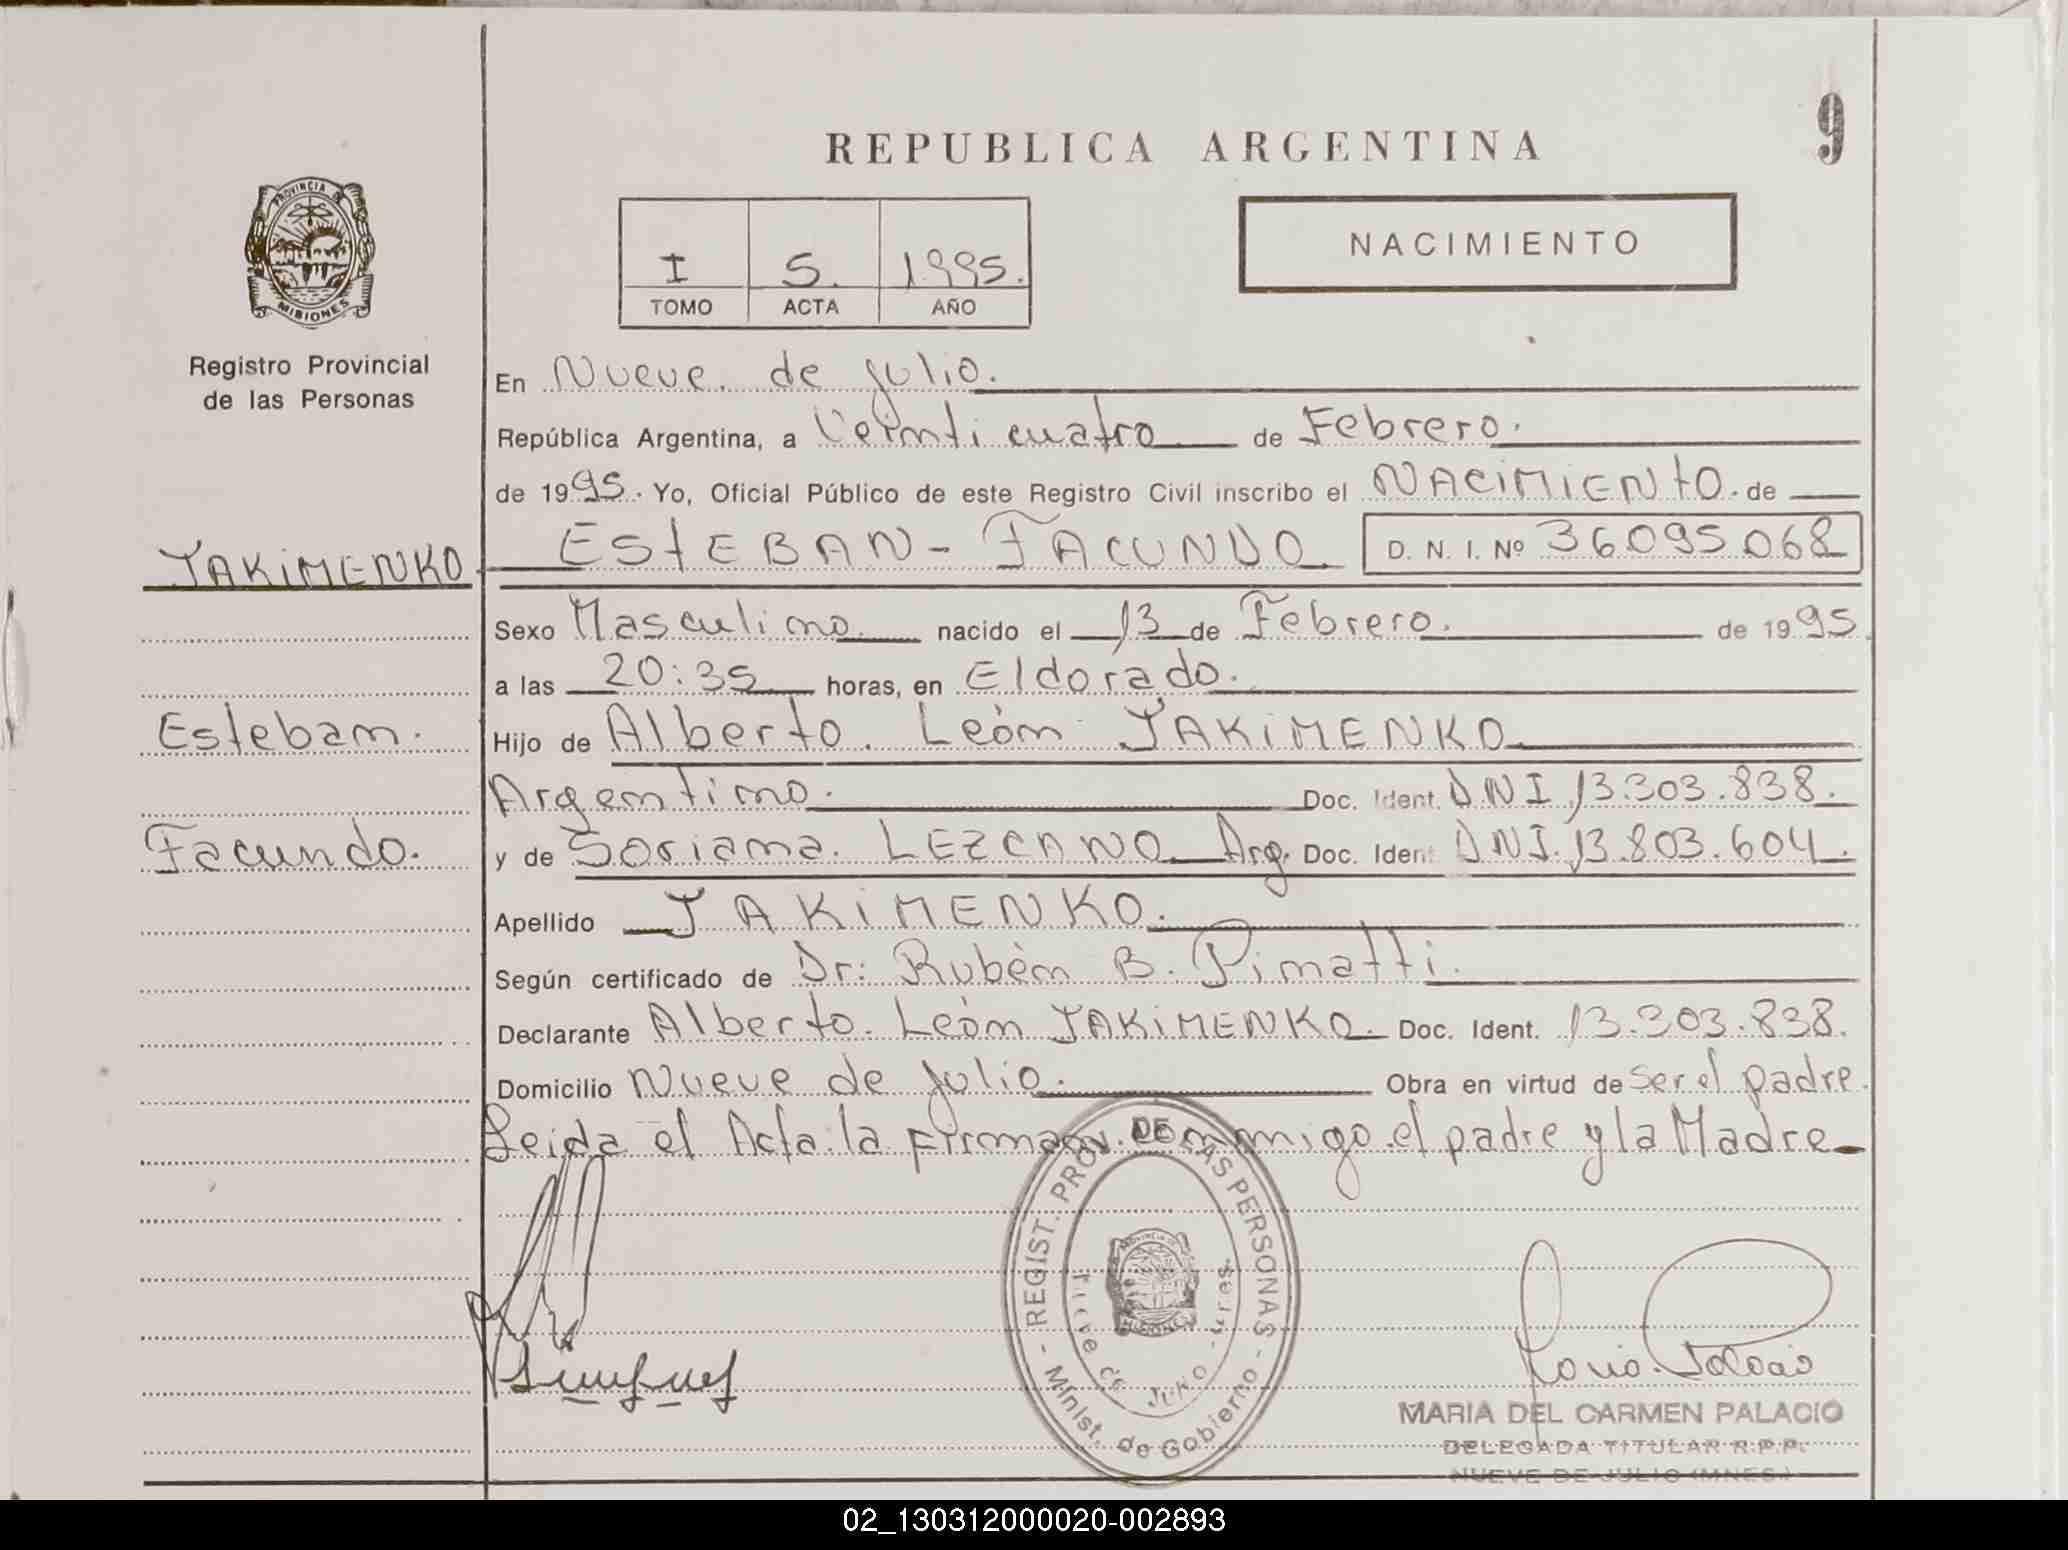 9
REPUBLICA ARGENTINA
PROVINCIA DE
MISIONES
Registro Provincial
de las Personas
I 5. 1995.
TOMO ACTA AÑO
NACIMIENTO
En Nueve de Julio.
República Argentina, a Veinti cuatro de Febrero.
de 1995. Yo, Oficial Público de este Registro Civil inscribo el NACIMIENTO de
YAKIMENKO ESTEBAN - FACUNDO D. N. I. Nº 36095068
Sexo Masculino nacido el 13 de Febrero. de 1995
a las 20:35 horas, en Eldorado.
Esteban. Hijo de Alberto. León YAKIMENKO
Argentino. Doc. Ident. DNI 13.303.838.
Facundo. y de Soriana. LEZCANO Arg. Doc. Ident DNI. 13.803.604.
Apellido YAKIMENKO.
Según certificado de Dr: Rubèn B. Pinatti.
Declarante Alberto. León YAKIMENKO. Doc. Ident. 13.303.838.
Domicilio Nueve de Julio. Obra en virtud de ser el padre.
Leida el Acta la firman conmigo el padre y la Madre
REGIST. PROV. DE LAS PERSONAS
- Minist. de Gobierno -
MARIA DEL CARMEN PALACIO
DELEGADA TITULAR R.P.P.
NUEVE DE JULIO (MNES.)
02_130312000020-002893